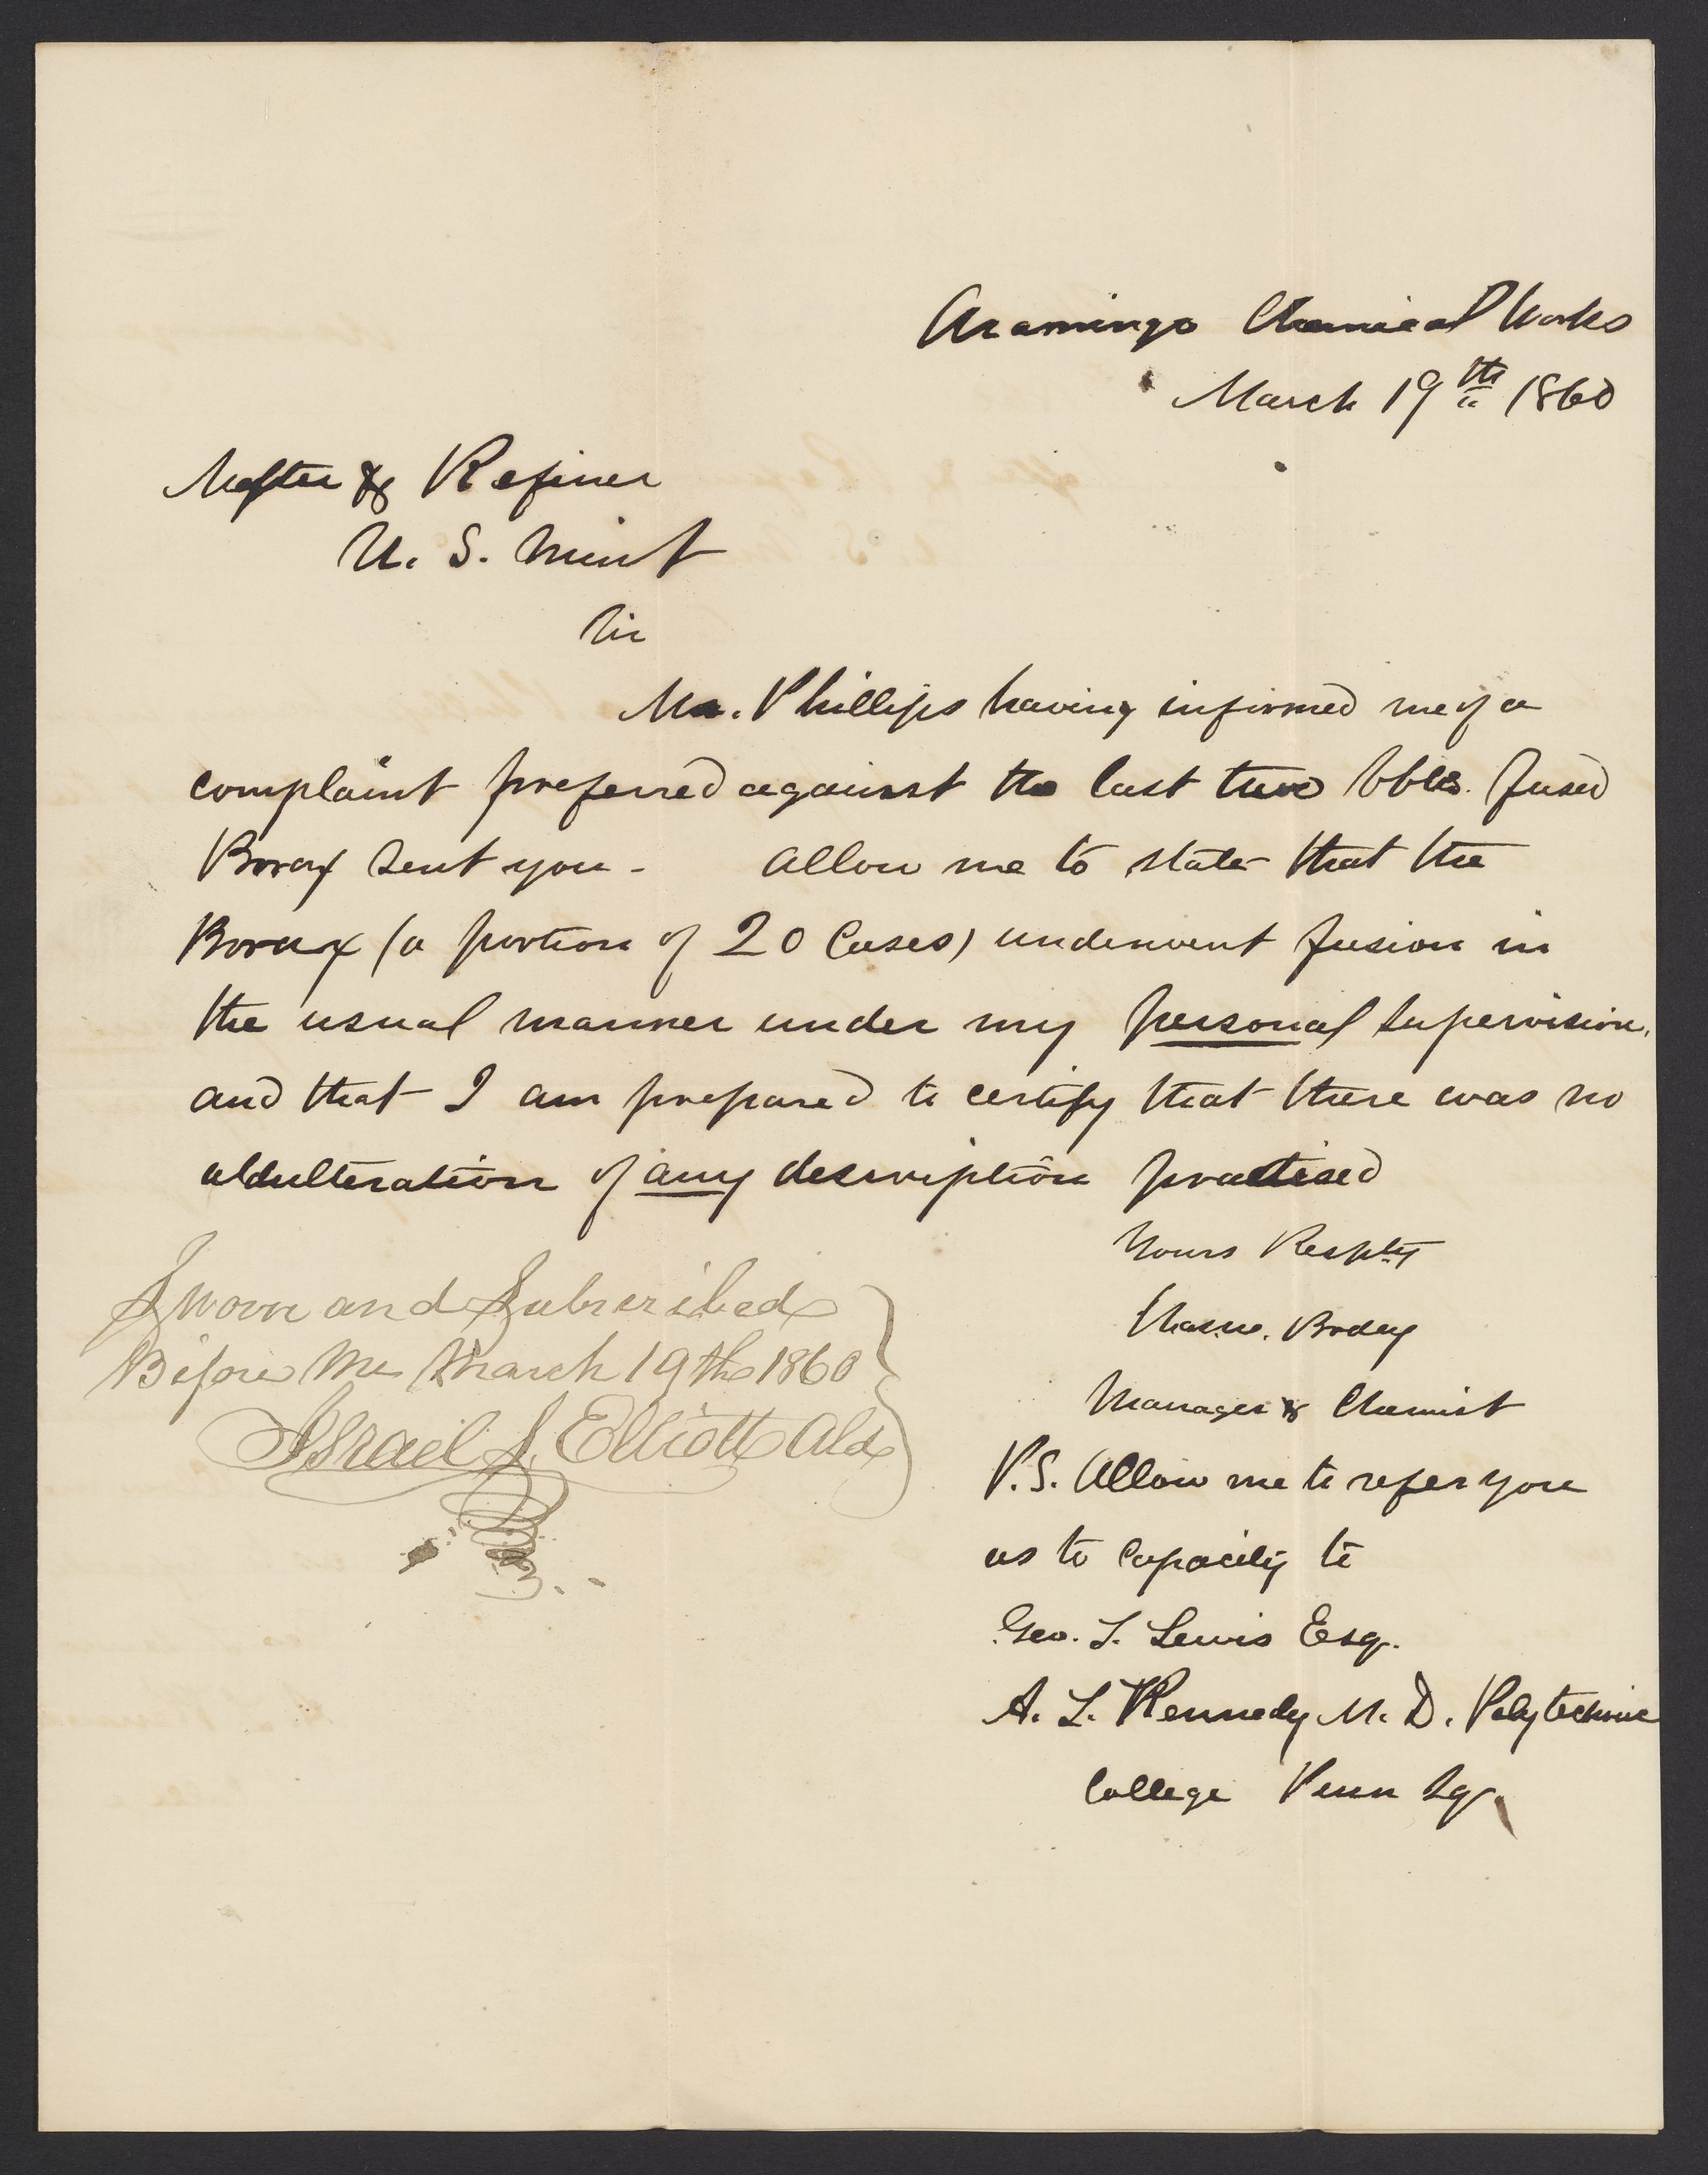 Aramingo Chemical Works
March 19th 1860
Melter & Refiner
U. S. Mint
Sir
Mr. Phillips having informed me of a
complaint preferred against the last two bbls. fused
Borax sent you - Allow me to state that the
Borax (a portion of 20 Cases) underwent fusion in
the usual manner under my personal supervision,
and that I am prepared to certify that there was no
aldulteration of any description practised
Yours Resply
Brodey
Manager & Chemist
Sworn and Subscribed
Before Me March 19th 1860
Israel J. Elliott Ald
P.S. Allow me to refer you
as to capacity to
Geo. T. Lewis Esq.
A. L. Kennedy M. D. Polytechnic
College Penn Sq.